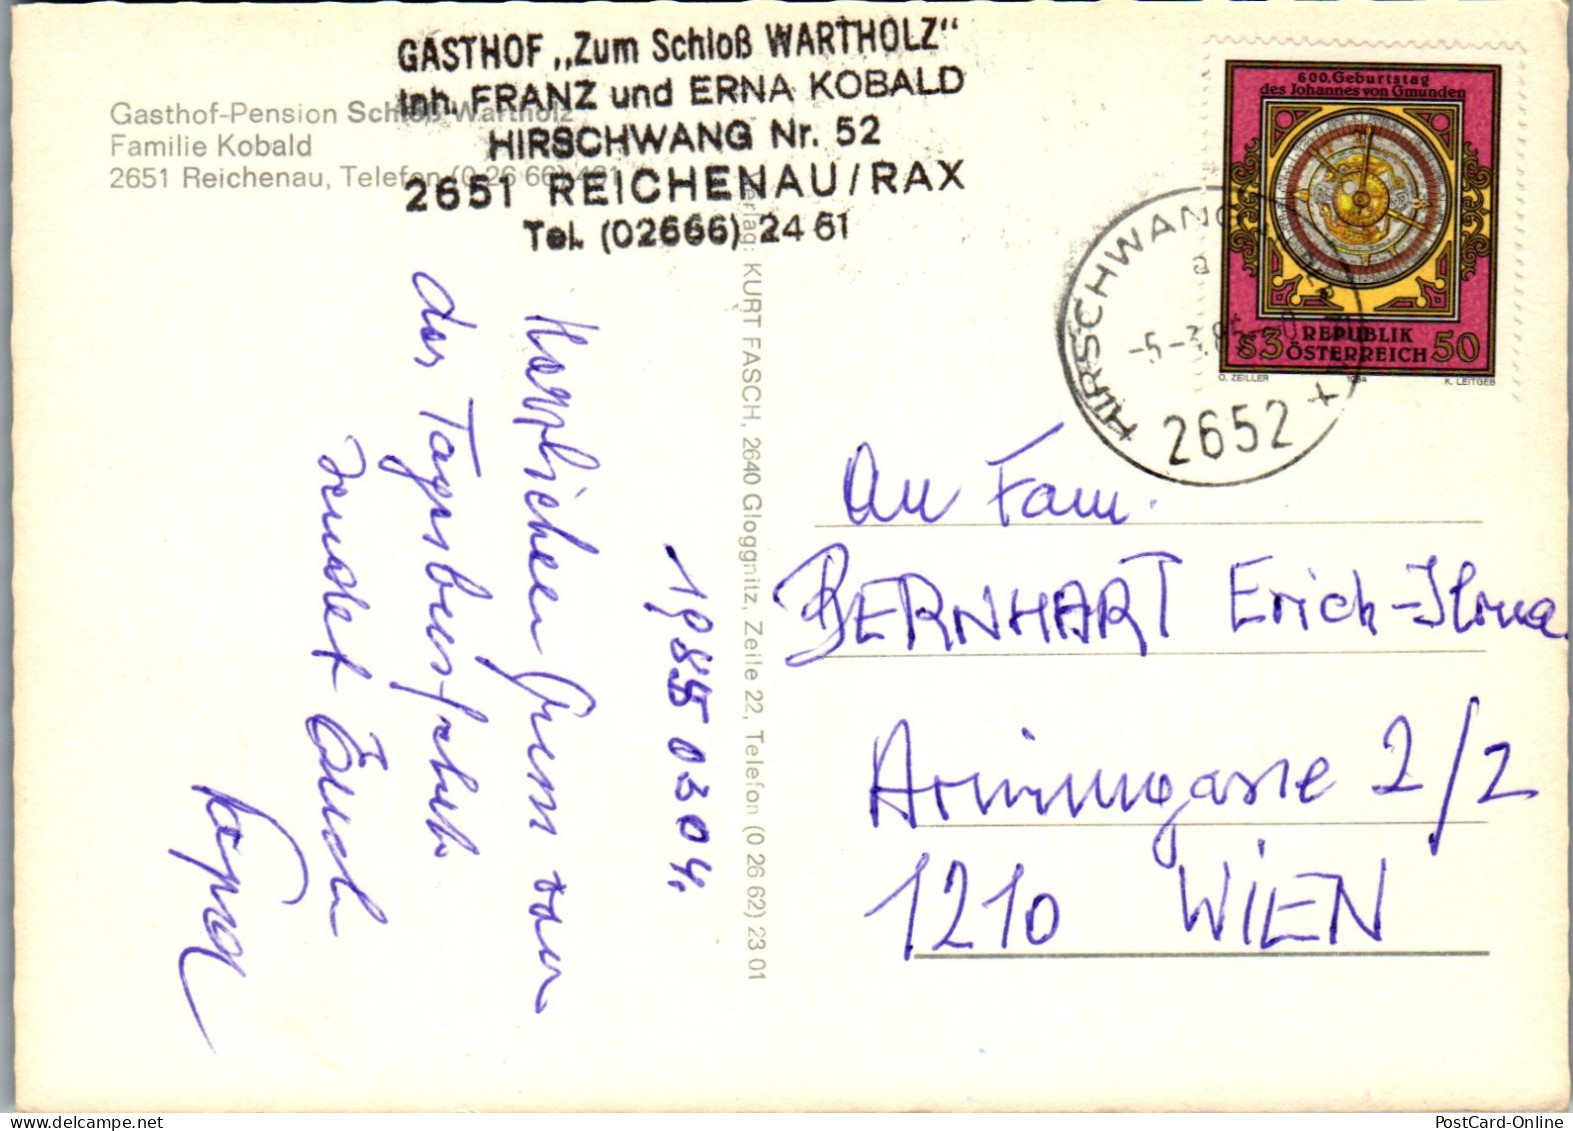 GASTHOF „Zum Schloß WARTHOLZ"
Inh. FRANZ und ERNA KOBALD
HIRSCHWANG Nr. 52
2651 REICHENAU/RAX
Tel. (02666) 24 61
Gasthof-Pension Schloß Wartholz
Familie Kobald
2651 Reichenau, Telefon (0 26 66) 491
600. Geburtstag
des Johannes von Gmunden
REPUBLIK
S3 ÖSTERREICH 50
O. ZEILLER 1984 K. LEITGEB
HIRSCHWANG
-5-3.85
2652
1985 03 04.
Herzlichen Gruss von
der Tagesbusfahrt
sendet Euch
Verlag: KURT FASCH, 2640 Gloggnitz, Zeile 22, Telefon (0 26 62) 23 01
An Fam.
BERNHART Erich-Ilona
Arminugasse 2/2
1210 WIEN
PostCard-Online
www.delcampe.net